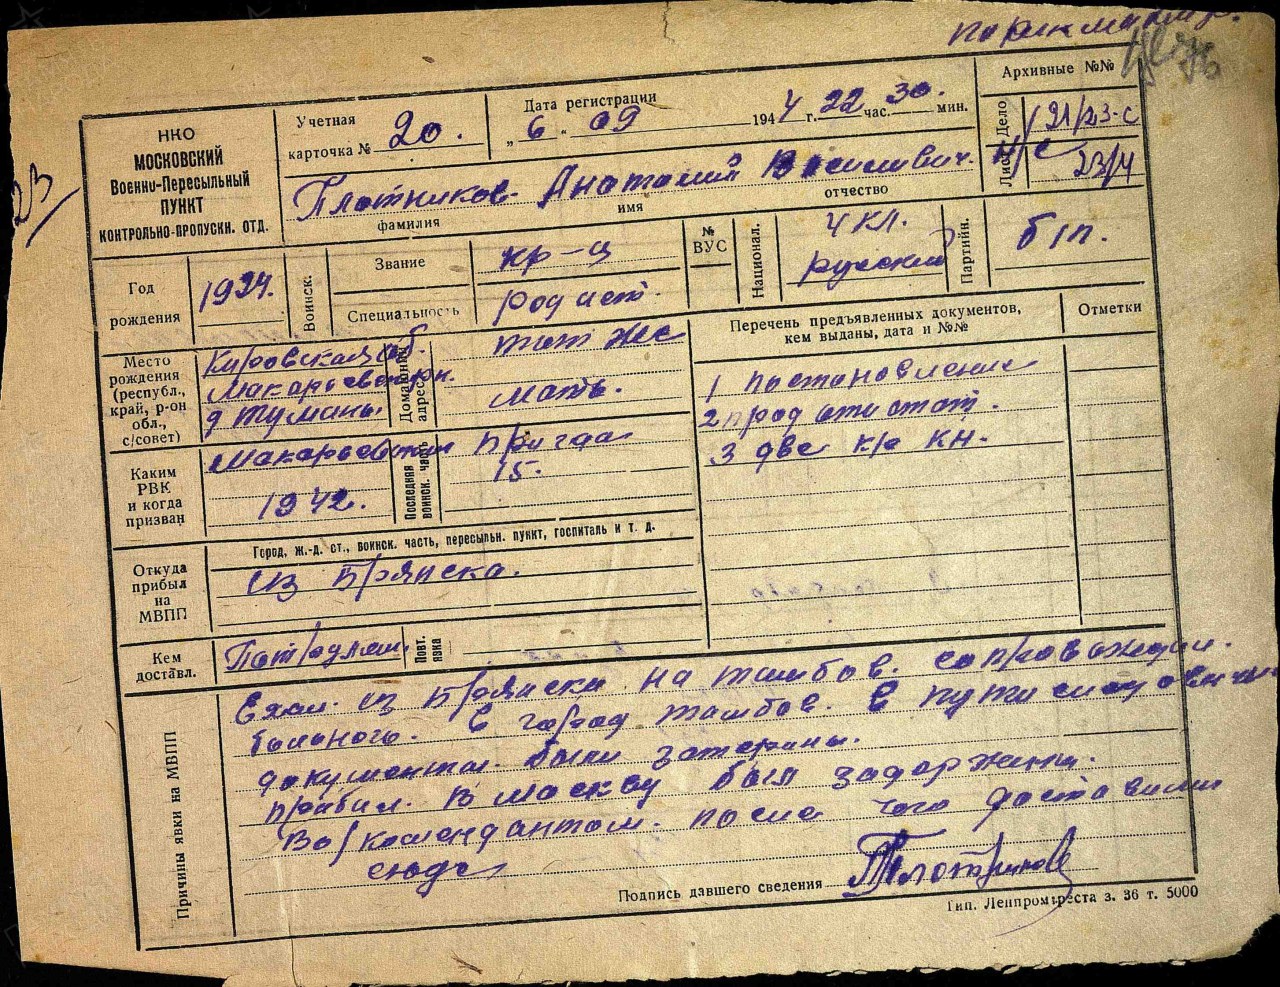 парикмахер.
23
НКО
МОСКОВСКИЙ
Военно-Пересыльный
ПУНКТ
КОНТРОЛЬНО-ПРОПУСКН. ОТД.
Учетная
карточка № 20.
Дата регистрации
„6" 09 1944 г. 22 час. 30. мин.
Архивные №№
Дело 121/23-с
Лист 23/4
Плотников Анатолий Василивич.
фамилия имя отчество
Год
рождения
1924.
Воинск.
Звание
кр-ц
Специальность
радист.
№
ВУС
Национал.
4 кл.
русский
Партийн.
б/п.
Место
рождения
(республ.,
край, р-он
обл.,
с/совет)
Кировская об.
Макарьевский рн.
д Туманы
Домашний
адрес
тот же
мать.
Перечень предъявленных документов,
кем выданы, дата и №№
Отметки
1 постановление
2 прод атистат.
3 две кр кн.
Каким
РВК
и когда
призван
Макарьевским
1942.
Последняя
воинск. часть
Бригада
15.
Город, ж.-д. ст., воинск. часть, пересыльн. пункт, госпиталь и т. д.
Откуда
прибыл
на
МВПП
из Брянска.
Кем
доставл.
Патрулем.
Повт.
явка
Причины явки на МВПП
Ехал. из Брянска на тамбов. сопровождал.
больного. В город тамбов. В пути следования
документы. были затеряны.
прибыл. в москву был задержен.
Во/комендантом. после чего доставили
сюда
Подпись давшего сведения Плотников
Тип. Ленпромтреста з. 36 т. 5000